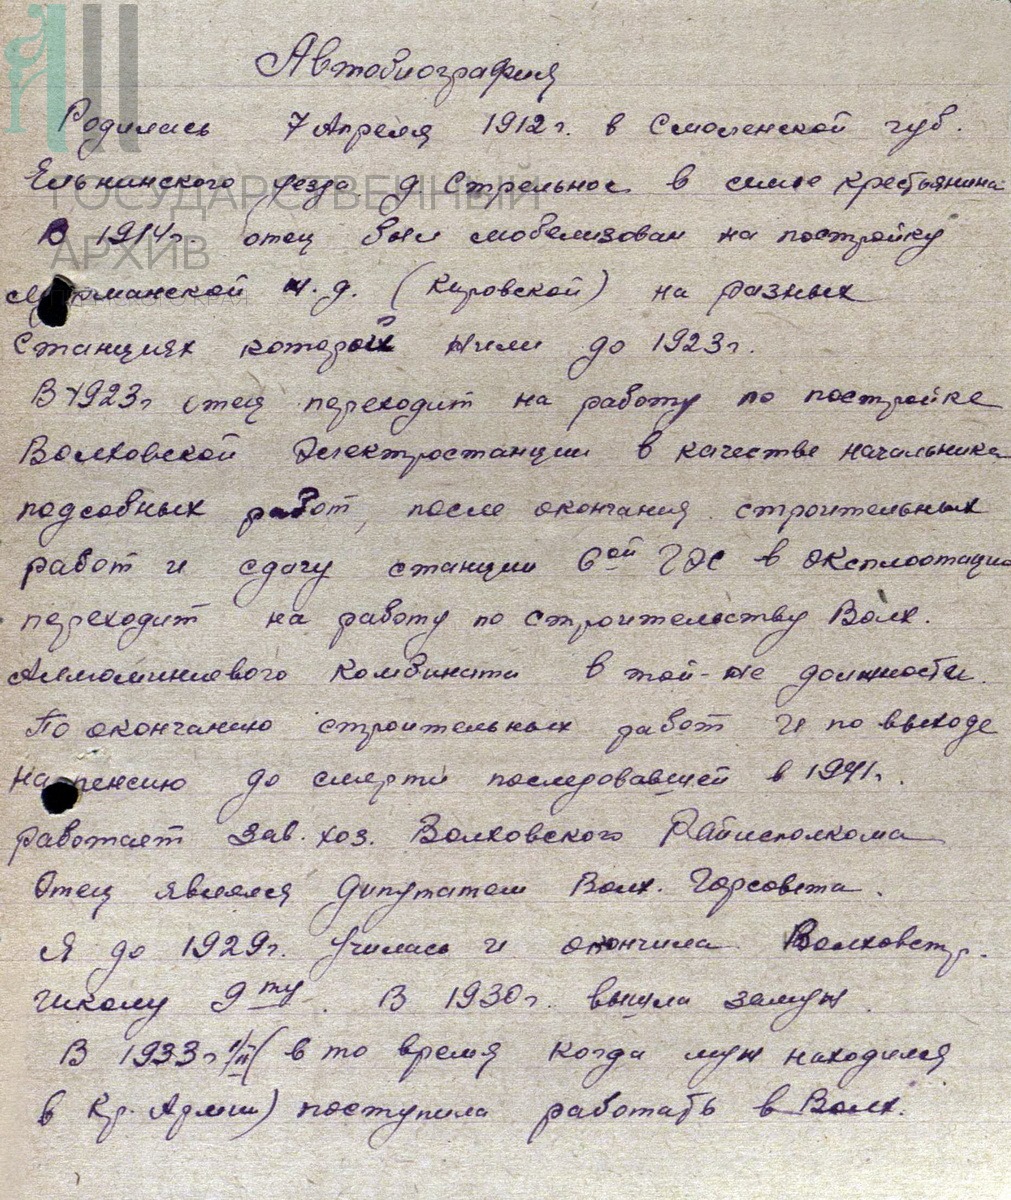 Автобиография
Родилась 7 Апреля 1912 г. в Смоленской губ.
Ельнинского уезда д. Стрельное в семье крестьянина
В 1914 г. отец был мобелизован на постройку
Мурманской ж.д. (Кировской) на разных
станциях которой жили до 1923 г.
В 1923 г отец переходит на работу по постройке
Волховской Электростанции в качестве начальника
подсобных работ, после окончания строительных
работ и сдачу станции 6ой ГЭС в эксплоотацию
переходит на работу по строительству Волх.
Аллюминиевого Комбината в той-же должности.
По окончанию строительных работ и по выходе
на пенсию до смерти последовавшей в 1941 г.
работает зав. хоз. Волховского Райисполкома
Отец являлся Дипутатом Волх. Горсовета.
Я до 1929 г. училась и окончила Волховстр.
школу 9ту. В 1930 г. вышла замуж.
В 1933 г (в то время когда муж находился
в Кр. Армии) поступила работать в Волх.
ГОСУДАРСТВЕННЫЙ
АРХИВ